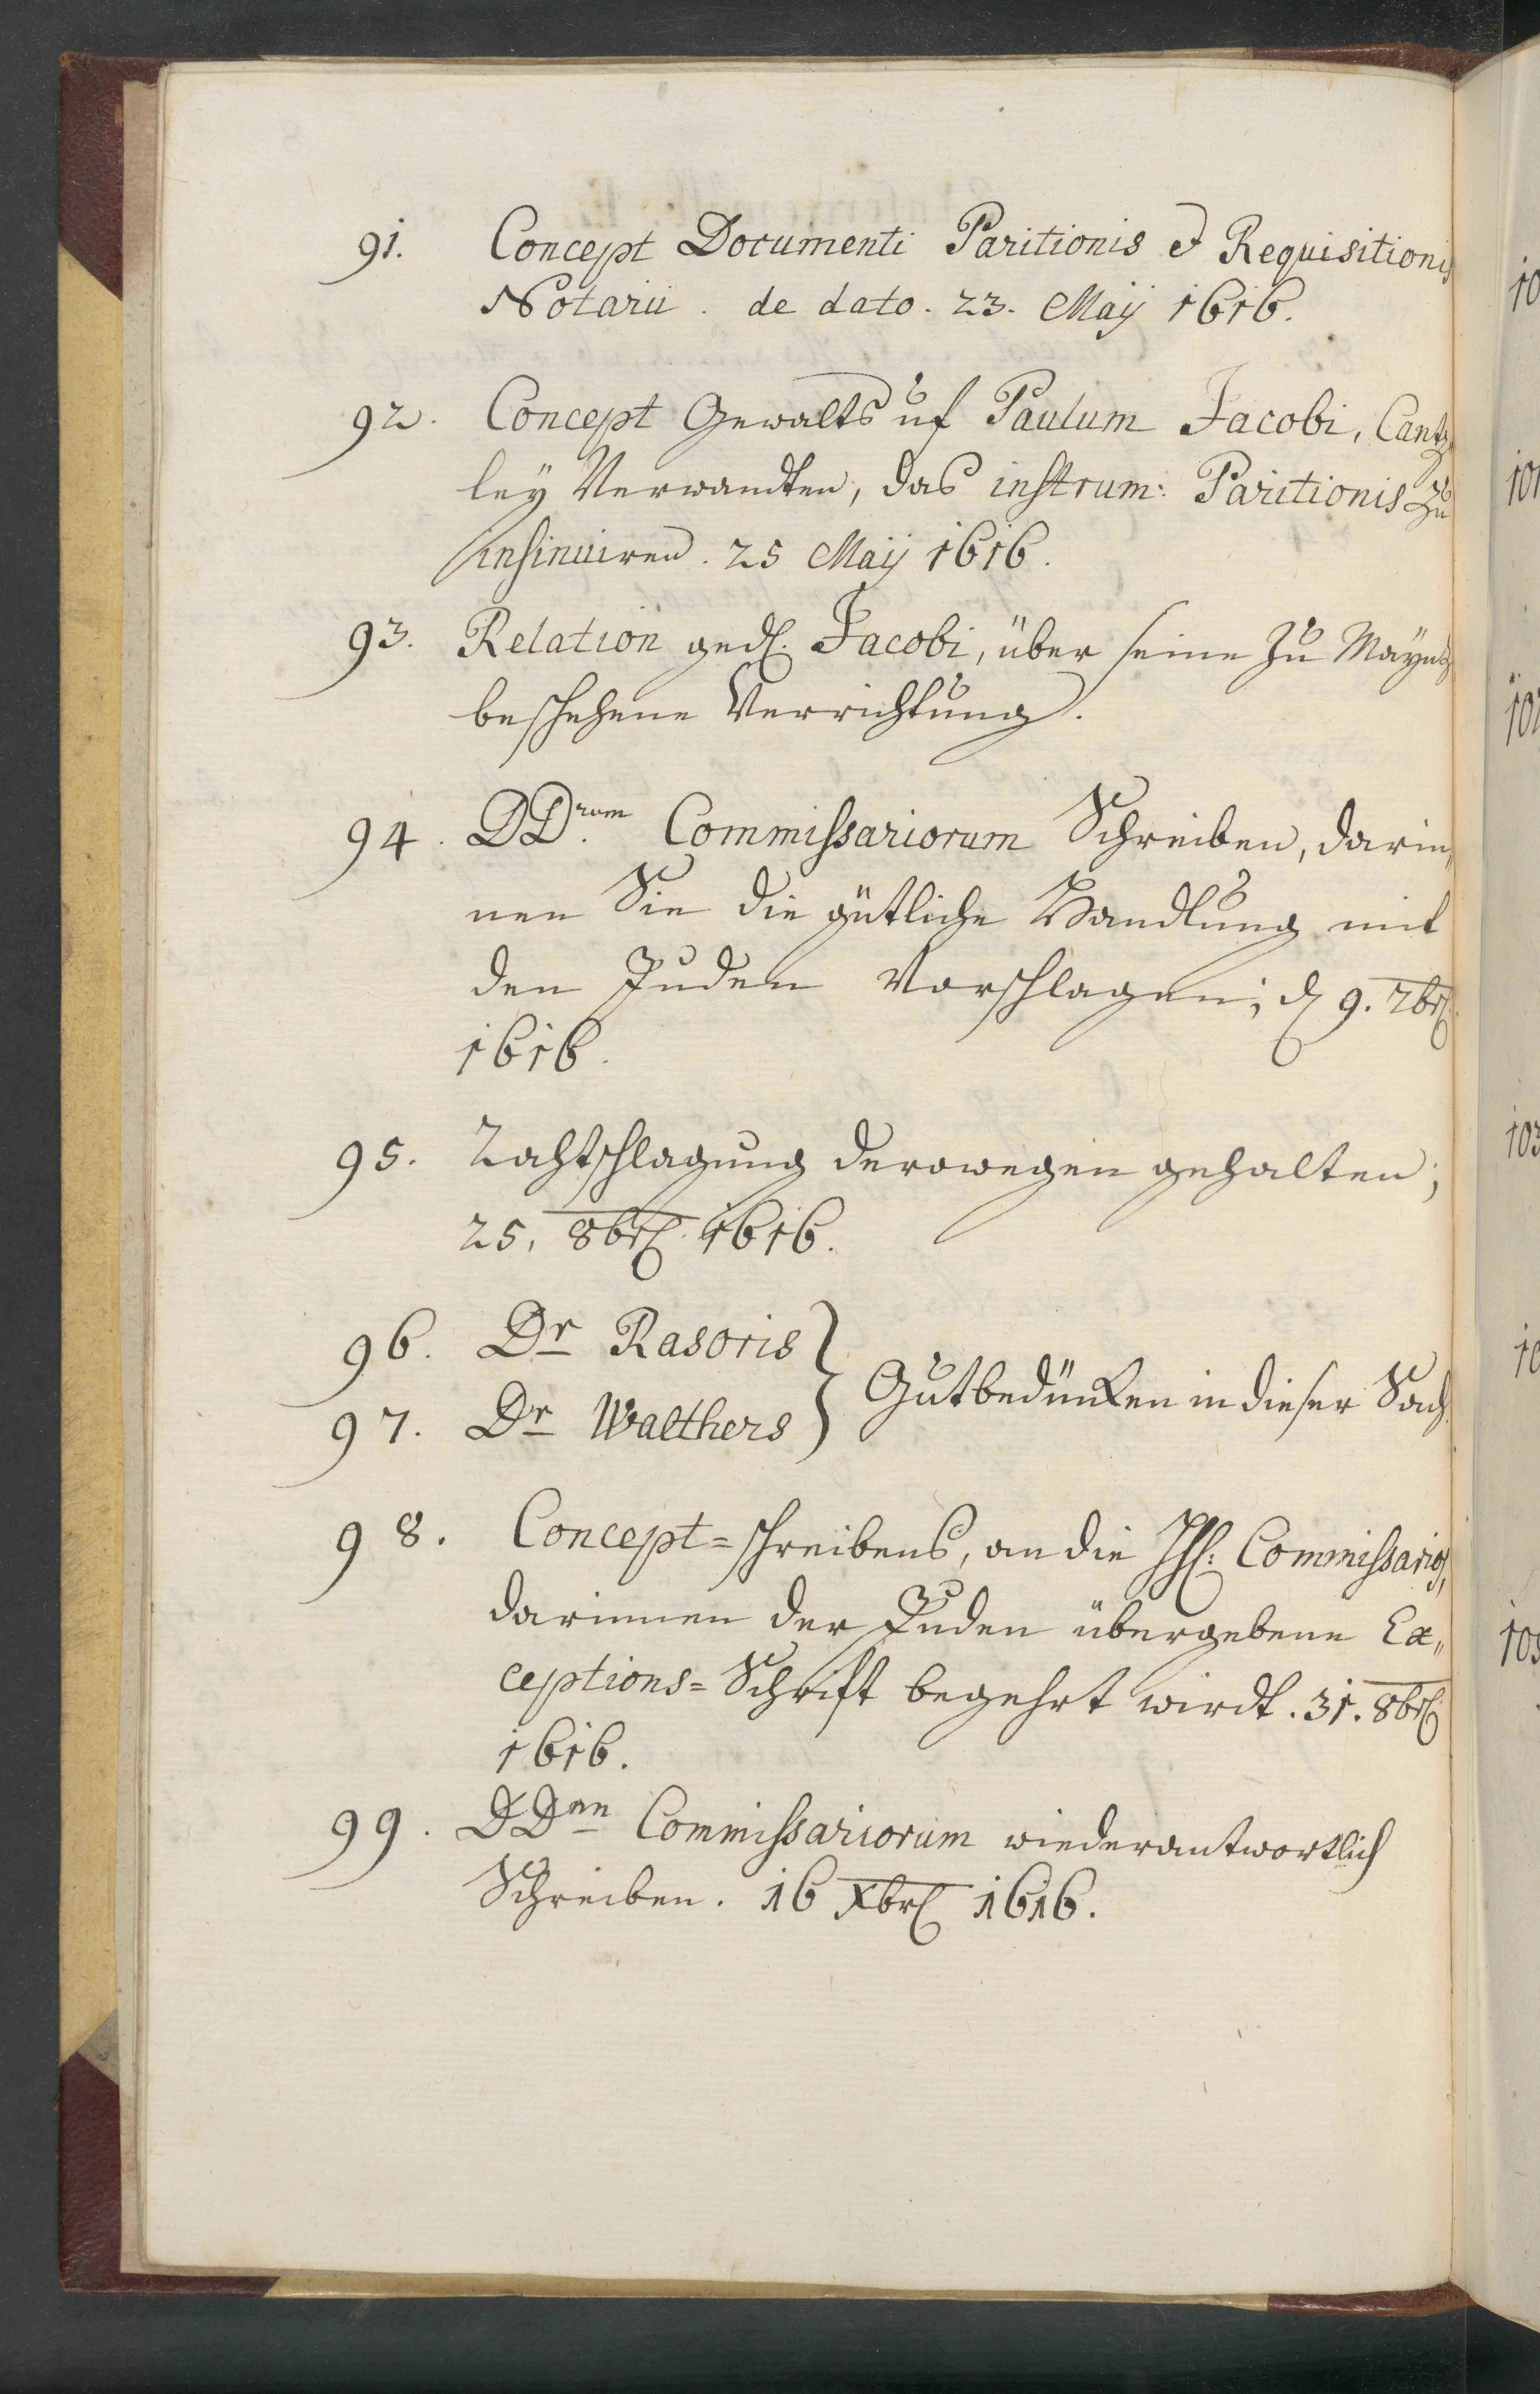 91. Concept Documenti Paritionis et Requisitionis
Notarii. de dato. 23. Maÿ 1616.
92. Concept Gewalts uf Paulum Jacobi, Cantz-
leÿ Verwandten, das instrum: Paritionis zu
insinuiren. 25 Maÿ 1616.
93. Relation ged. Jacobi, über seine zu Maÿntz
beschehene Verrichtung.
94. DD.rum Commissariorum Schreiben, darin„
nen Sie die gütliche Handlung mit
den Juden vorschlagen; d 9. 7br.
1616.
95. Rahtschlagung derowegen gehalten;
25. 8br. 1616.
96. Dr Rasoris } Gutbedüncken in dieser Sach.
97. Dr Walthers
98. Concept=schreibens, an die HH: Commissarios,
darinnen der Juden übergebene Ex„
ceptions=Schrift begehrt wirdt. 31. 8br.
1616.
99. DDnn Commissariorum wiederantwortlich
Schreiben. 16 Xbr 1616.
10
101
102
103
10
105